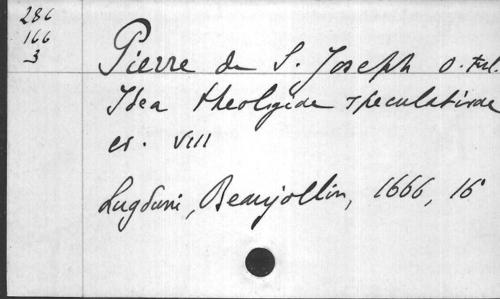 286
166
3
Pierre de S. Joseph O. Ful.
Idea theologiae speculativae
ed. VIII
Lugduni, Beaujollin, 1666, 16°